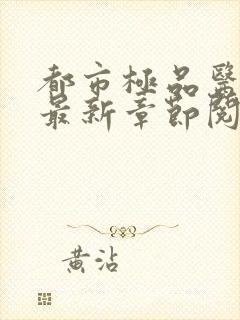 都市極品醫
最新章節閱
黃沾